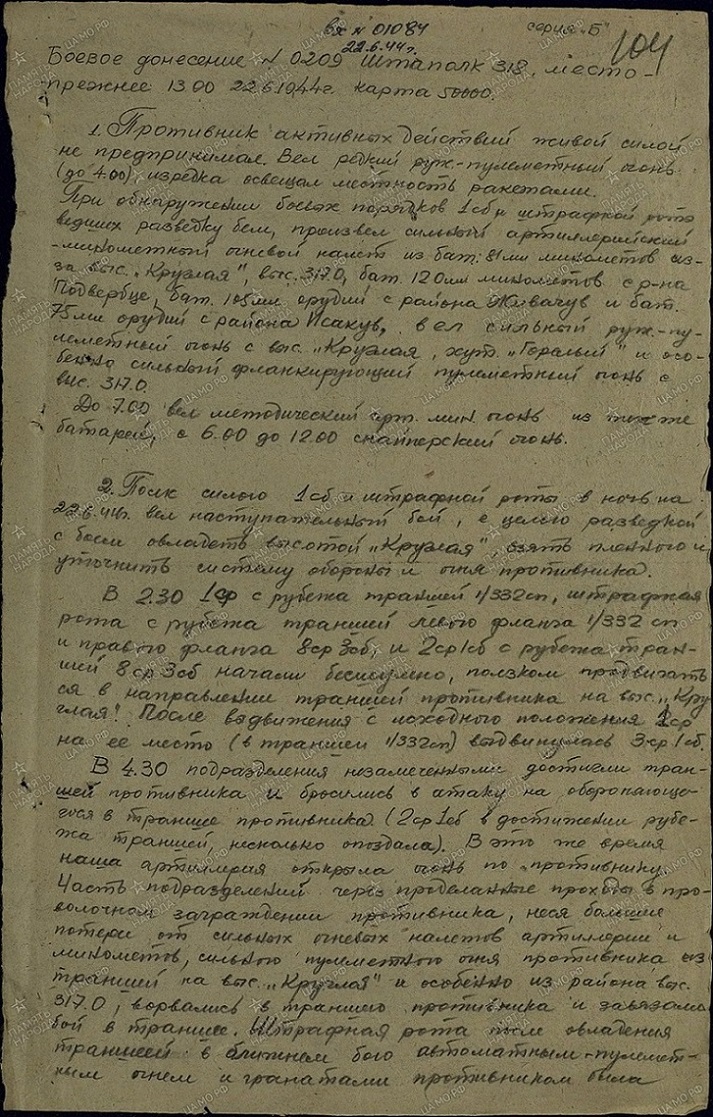 вх N 01084
22.6.44г.
серия „Б"
104
Боевое донесение N 0209 Штаполк 318, место-
прежнее 13.00 22.6.1944г. карта 50000.
1. Противник активных действий живой силой
не предпринимал. Вел редкий руж-пулеметный огонь
(до 4.00) изредка освещал местность ракетами.
При обнаружении боевых порядков 1сб и штрафной роты
ведших разведку боем, произвел сильный артиллерийский
-минометный огневой налет из бат. 81мм минометов из-
за выс. „Круглая", выс. 317.0, бат. 120мм минометов с р-на
Подвербце, бат. 105мм орудий с района Живачув и бат.
75мм орудий с района Исакув, вел сильный руж-пу-
леметный огонь с выс. „Круглая, хут. и осо-
бенно сильный фланкирующий пулеметный огонь с
выс. 317.0.
До 7.00 вел методический арт. мин. огонь из тех же
батарей, с 6.00 до 12.00 снайперский огонь.
2. Полк силою 1сб и штрафной роты в ночь на
22.6.44г. вел наступательный бой, с целью разведкой
с боем овладеть высотой „Круглая" взять пленного и
уточнить систему обороны и огня противника.
В 2.30 1ср с рубежа траншей 1/332сп, штрафная
рота с рубежа траншей левого фланга 1/332 сп
и правого фланга 8ср 3сб, и 2ср1сб с рубежа тран-
шей 8ср 3сб начали бесшумно, ползком продвигать
ся в направлении траншей противника на выс. „Кру-
глая". После выдвижения с исходного положения 1ср
на ее место (в траншеи 1/332сп) выдвинулась 3ср 1сб.
В 4.30 подразделения незамеченными достигли тран-
шей противника и бросились в атаку на обороняюще-
гося в траншее противника (2ср 1сб в достижении рубе-
жа траншей, несколько опоздала). В это же время
наша артиллерия открыла огонь по противнику.
Часть подразделений через проделанные проходы в про-
волочном заграждении противника, неся большие
потери от сильных огневых налетов артиллерии и
минометов, сильного пулеметного огня противника из
траншей на выс. „Круглая" и особенно из района выс.
317.0, ворвались в траншею противника и завязали
бой в траншее. Штрафная рота после овладения
траншеей в ближнем бою автоматным-пулемет-
ным огнем и гранатами противником была